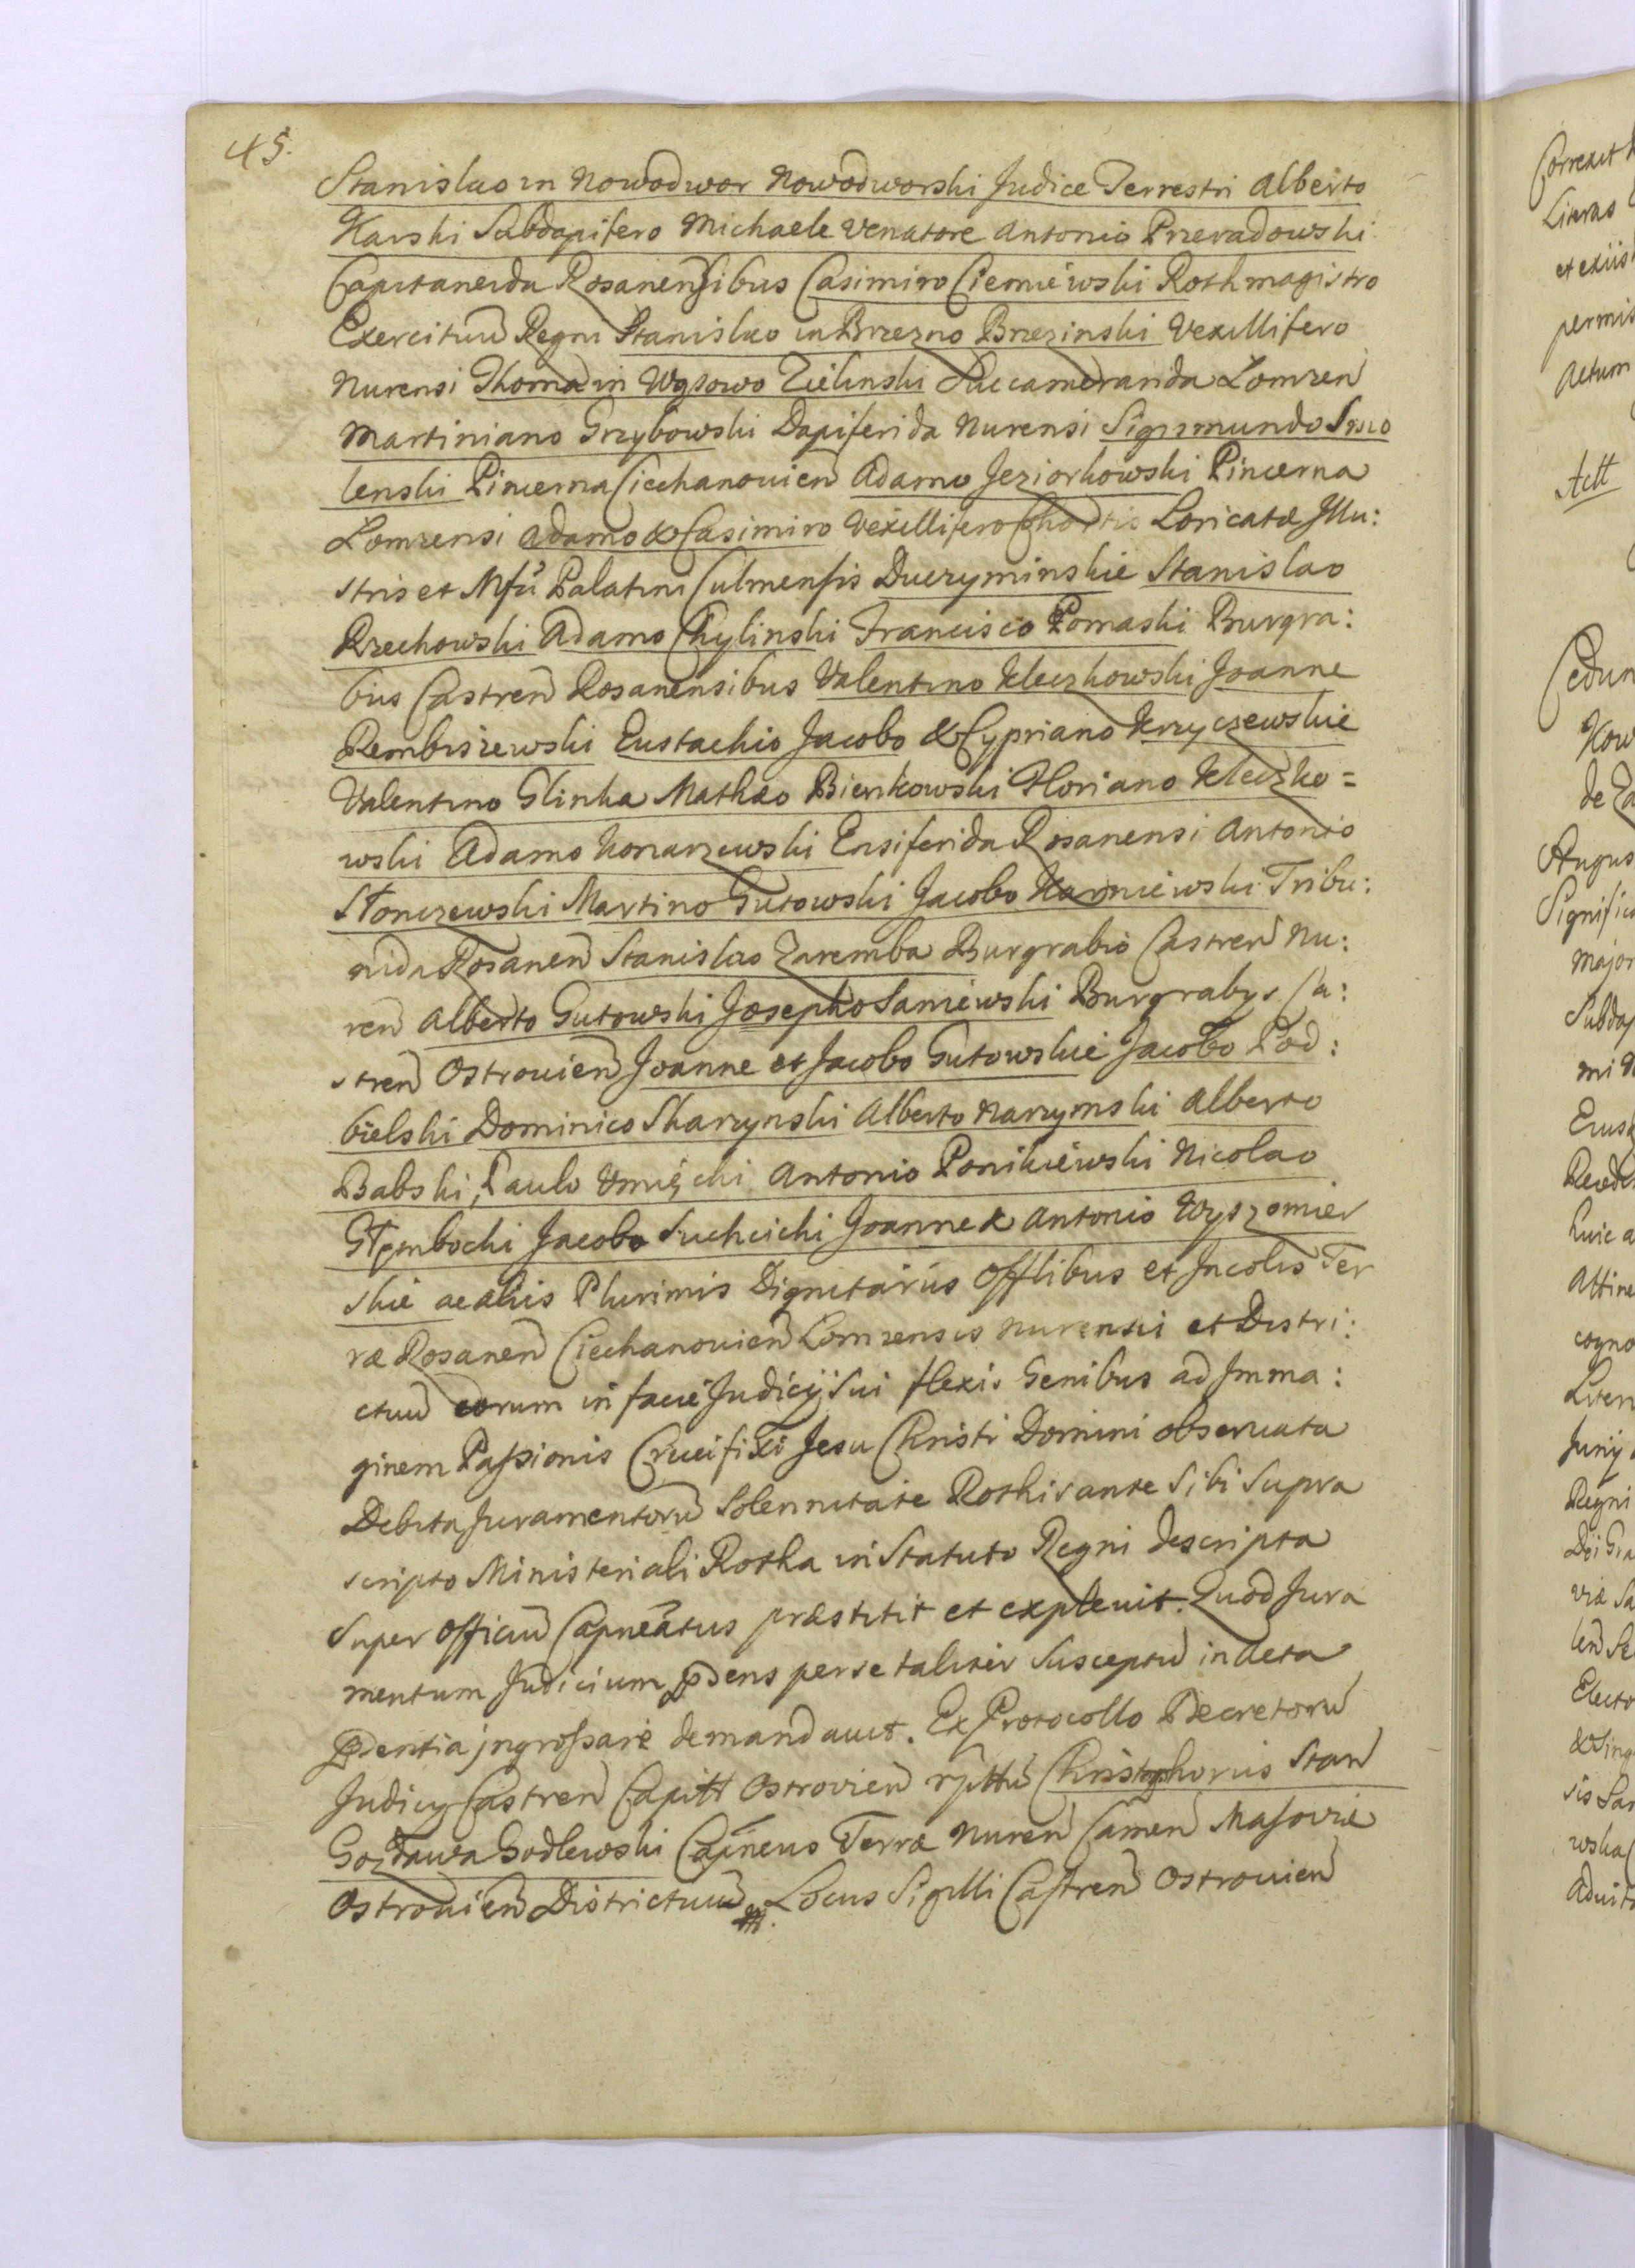 45.
Stanislao in Nowodwor Nowodworski Judice Terrestri Alberto
Karski Subdapifero Michaele Venatore Antonio Przeradowski
Capitaneida Rosanensibus Casimiro Ciemniewski Rothmagistro
Exercituu Regni Stanislao in Brzezno Brzezinski Vexillifero
Nurensi Thoma in Wąsowo Zielinski Succameraida Lomzen
Martiniano Grzybowski Dapiferida Nurensi Sigismundo Smo
lenski Pincerna Ciechanouien Adamo Jeziorkowski Pincerna
Lomzensi Adamo & Casimiro Vexillifero Chortis Loricatæ Illu:
stris et Mfci Palatini Culmensis Duczyminskie Stanislao
Rzechowski Adamo Chylinski Francisco Pomaski Burgra:
biis Castren Rosanensibus Valentino Kleczkowski Joanne
Rembiszewski Eustachio Jacobo & Cypriano Krzyczewskie
Valentino Glinka Mathæo Bienkowski Floriano Kleczko=
wski Adamo Konarzewski Ensiferida Rosanensi Antonio
Słonczewski Martino Gutowski Jacobo Karniewski Tribu:
nida Rosanen Stanislao Zaremba Burgrabio Castren Nu:
ren Alberto Gutowski Josepho Saniewski Burgrabys Ca:
stren Ostrouien Joanne et Jacobo Gutowskie Jacobo Pod:
bielski Dominico Skarzynski Alberto Narzymski Alberto
Babski, Paulo Antonio Ponikiewski Nicolao
Głembocki Jacobo Sucheicki Joanne & Antonio Wyszomier
skie ac aliis Plurimis Dignitariis Offlibus et Incolis Ter
ræ Rosanen Ciechanouien Lomzensis Nurensis et Distri:
ctuu eorum in facie Judicij Sui flexis Genibus ad Imma:
ginem Passionis Crucifixi Jesu Christi Domini obseruata
Debita Juramentoru Solennitate Rothisante Sibi Supra
scripto Ministeriali Rotha in Statuto Regni descripta
Super Officiu Capneatus præstitit et expleuit. Quod Jura
mentum Judicium pdens per se taliter Susceptu in Acta
pdentia jngrossare demandauit. Ex Protocollo Decretoru
Judicij Castren Capitt Ostrovien rpttu Christophorus Stan
Gozdawa Godlewski Capneus Terræ Nuren Camen Masoviæ
Ostrouien Districtuu Locus Sigilli Castren Ostrouien